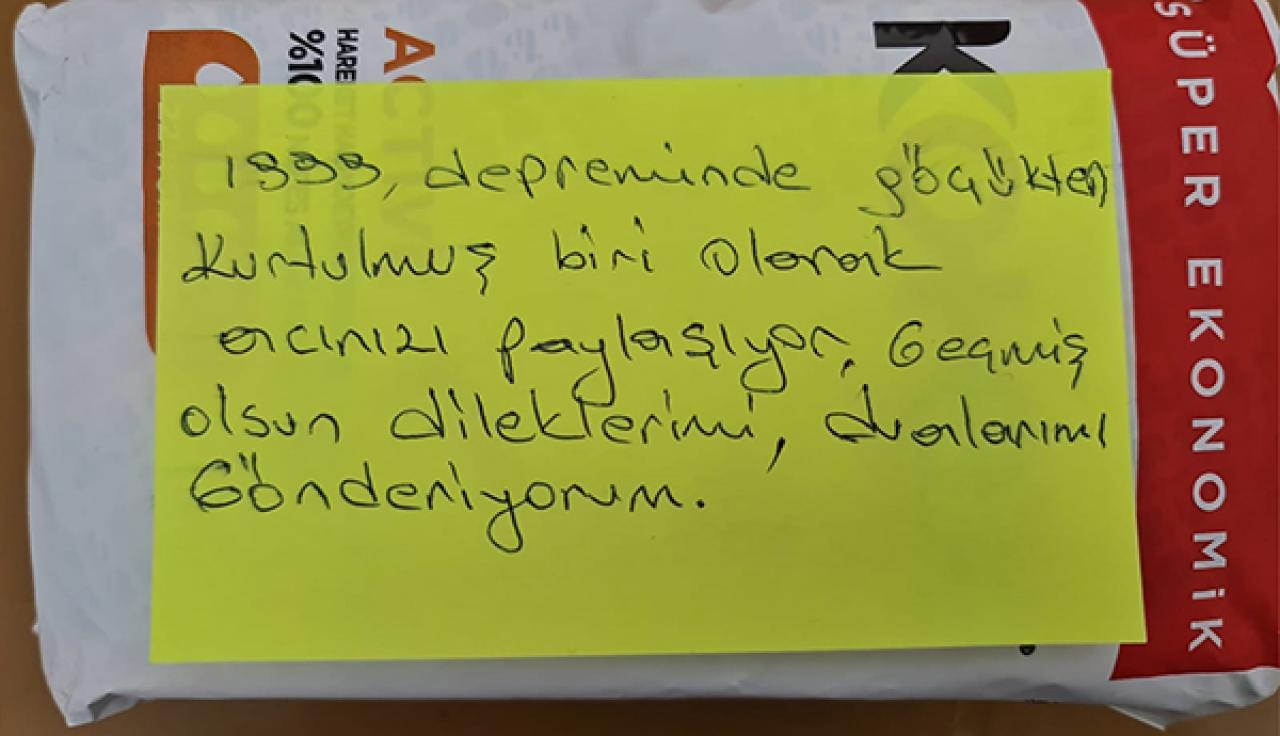 1999, depreminde göçükten
kurtulmuş biri olarak
acınızı paylaşıyor, Geçmiş
olsun dileklerimi, dualarımı
Gönderiyorum.
SÜPER EKONOMİK
ACTIV
%100